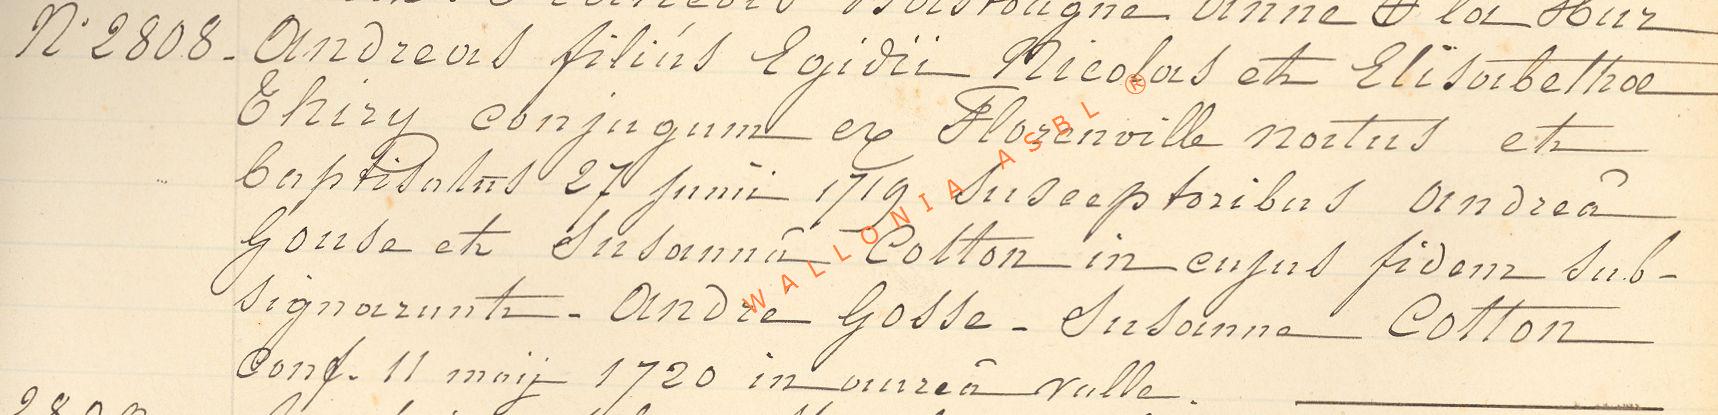 Bastougne Anne F la Hur
N° 2808 - Andreas filius Egidii Nicolas et Elisabethae
Thiry conjugum ex Florenville natus et
baptisatus 27 junii 1719 susceptoribus Andreâ
Gouse et Susannâ Cotton in cujus fidem sub-
signarunt - Andre Gosse - Susanne Cotton
conf. 11 maij 1720 in aureâ valle.
WALLONIA ASBL ®